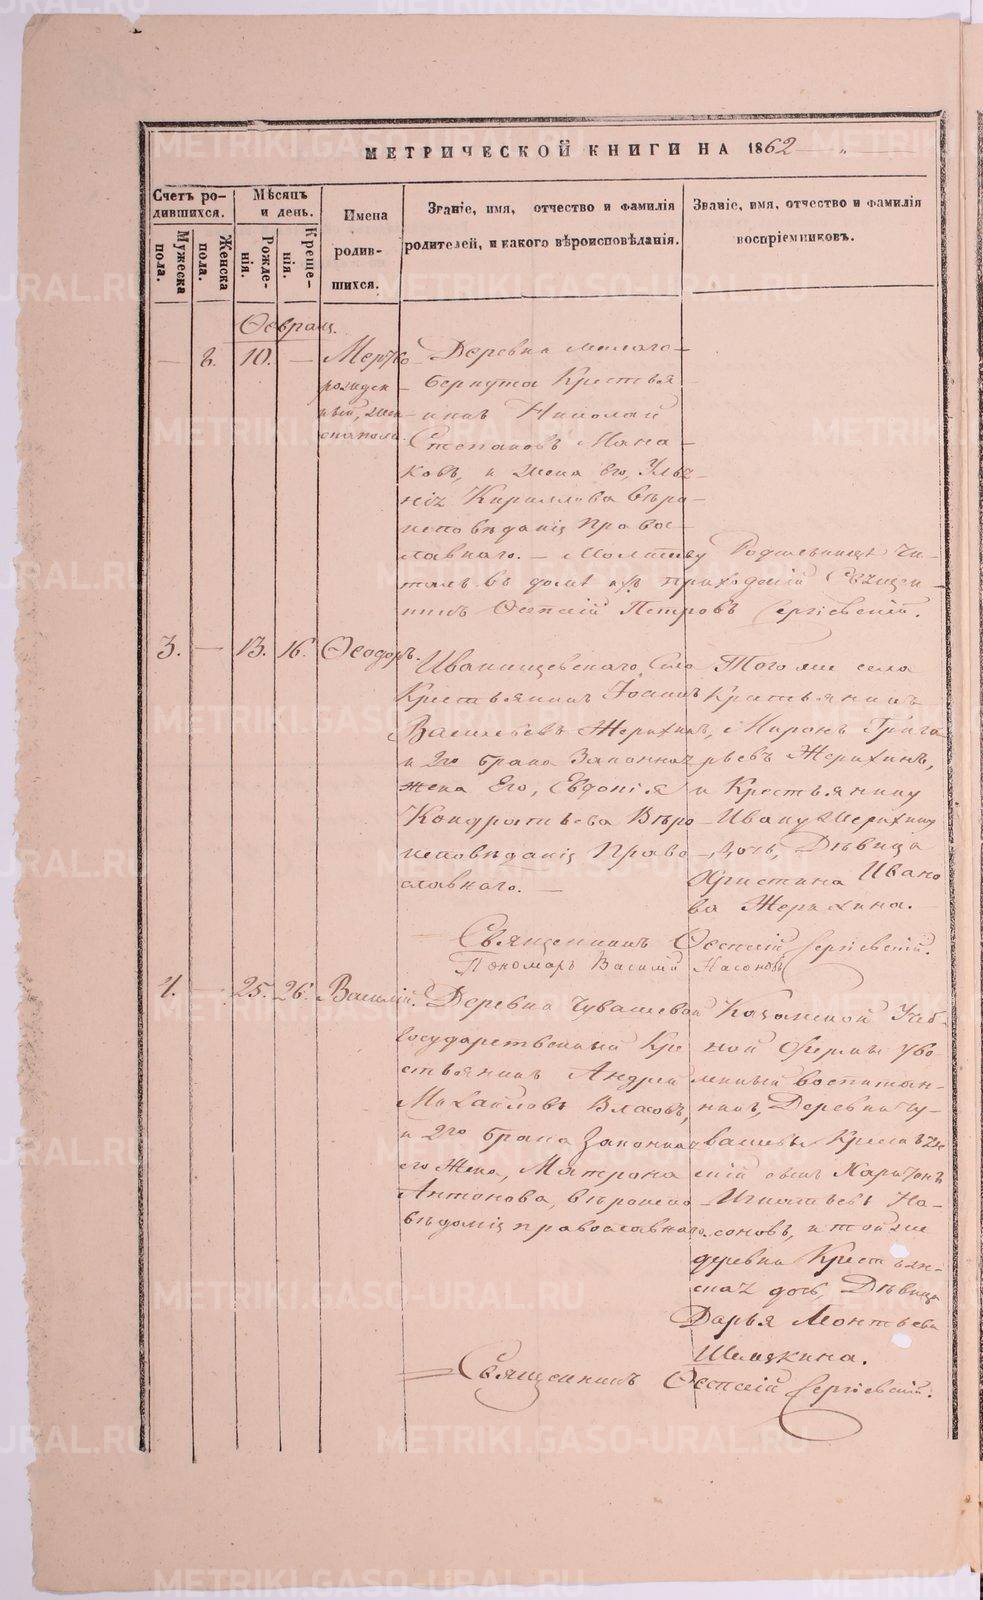 МЕТРИЧЕСКОЙ КНИГИ НА 1862
Счетъ ро-
дившихся.
Мѣсяцъ
и день.
Имена
родив-
шихся.
Званіе, имя, отчество и фамилія
родителей, и какого вѣроисповѣданія.
Званіе, имя, отчество и фамилія
воспріемниковъ.
Мужеска
пола.
Женска
пола.
Рожде-
нія.
Креще-
нія.
Февраль
10.
Мертво
рожден
ный, жен
ска пола.
Деревни
Крестья
нинъ Николай
Степановъ Мана
ковъ, и жена его, Улья
нія Кириллова вѣро
исповѣданія Право
славнаго. — Молитву Родильницѣ Чи-
талъ въ домѣ приходскій Священ-
никъ Петровъ Сергіевскій.
3. — 13. 16. Ѳеодоръ.
Иванищевскаго Села
Крестьянинъ Іоаннъ
Васильевъ Жерихинъ,
и 2го брака Законная
жена Его, Евдокія
Кондратьева Вѣро
исповѣданія Право
славнаго. —
Того же села
Крестьянинъ
Миронъ Григо
рьевъ Жерихинъ,
и Крестьянину
Ивану Жерихину
дочь, Дѣвица
Христина Ивано
ва Жерихина.
Священникъ Сергіевскій.
Пономарь Василій Насоновъ
4. — 25. 26. Василій.
Деревни Чувашевой
Государственный Кре
стьянинъ Андрей
Михайловъ Власовъ,
и 2го брака Законная
его Жена, Матрона
Антонова, вѣроиспо
вѣданія православнаго.
Казанской Учеб-
ной Фермы уво
лненный воспитан-
никъ, Деревни Чу-
вашевы Крестьян
скій сынъ Харитонъ
Игнатьевъ На-
соновъ, и той же
деревни Крестьян-
ская дочь, Дѣвица
Дарья Леонтьева
Шемякина.
Священникъ Сергіевскій.
METRIKI.GASO-URAL.RU